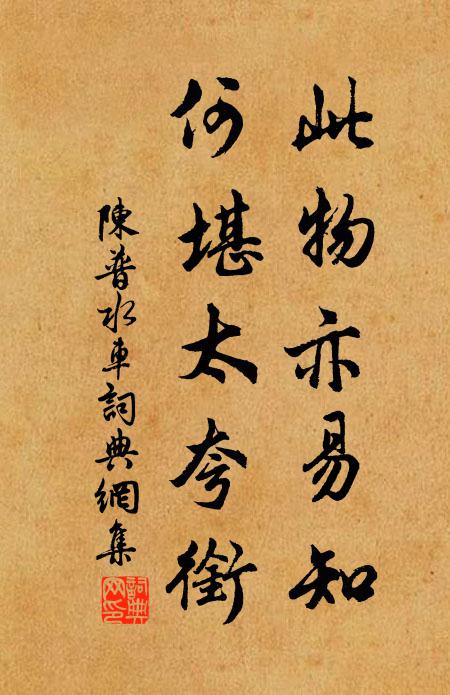 此物亦易知
何堪太夸衒
陳普水車詞典網集
詞典网印